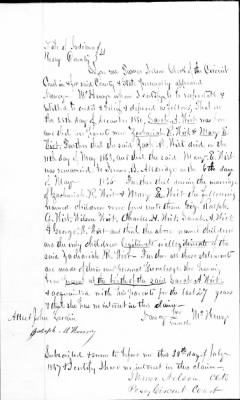 State of Indiana } ss
Posey County }
Before me James Nelson Clerk of the Circuit
Court in & for said County & State personally appeared
Nancy McHenry whom I certify to be reputable &
entitled to credit & being deposed as follows, That on
the 25th day of December 1861, Sarah A. Hist was born
and that her parents were Zachariah R. Hist & Mary E.
Hist. Further that the said Zach R. Hist died on the
11th day of May 1863, and that the said Mary E. Hist
was remarried to James B. Alldredge on the 6th day
of May Further that during the marriage
of Zachariah R. Hist & Mary E. Hist the following
named children were born unto them Viz, Ralph
A. Hist, Wilson Hist, Charles H. Hist, Sarah A. Hist
& George R. Hist and that the above named children
are the only children legitimate or illegitimate of the
said Zachariah R. Hist. Further all these statements
are made of her own Personal knowledge she having
been present at the birth of the said Sarah A. Hist
& acquainted with his parents for the last 27 years
& that she has no interest in this claim
Nancy her mark McHenry
Attest John
Joseph McHenry
Subscribed & sworn to before me this day of July
1867 & I certify I have no interest in this claim
James Nelson Clk
Posey Circuit Court